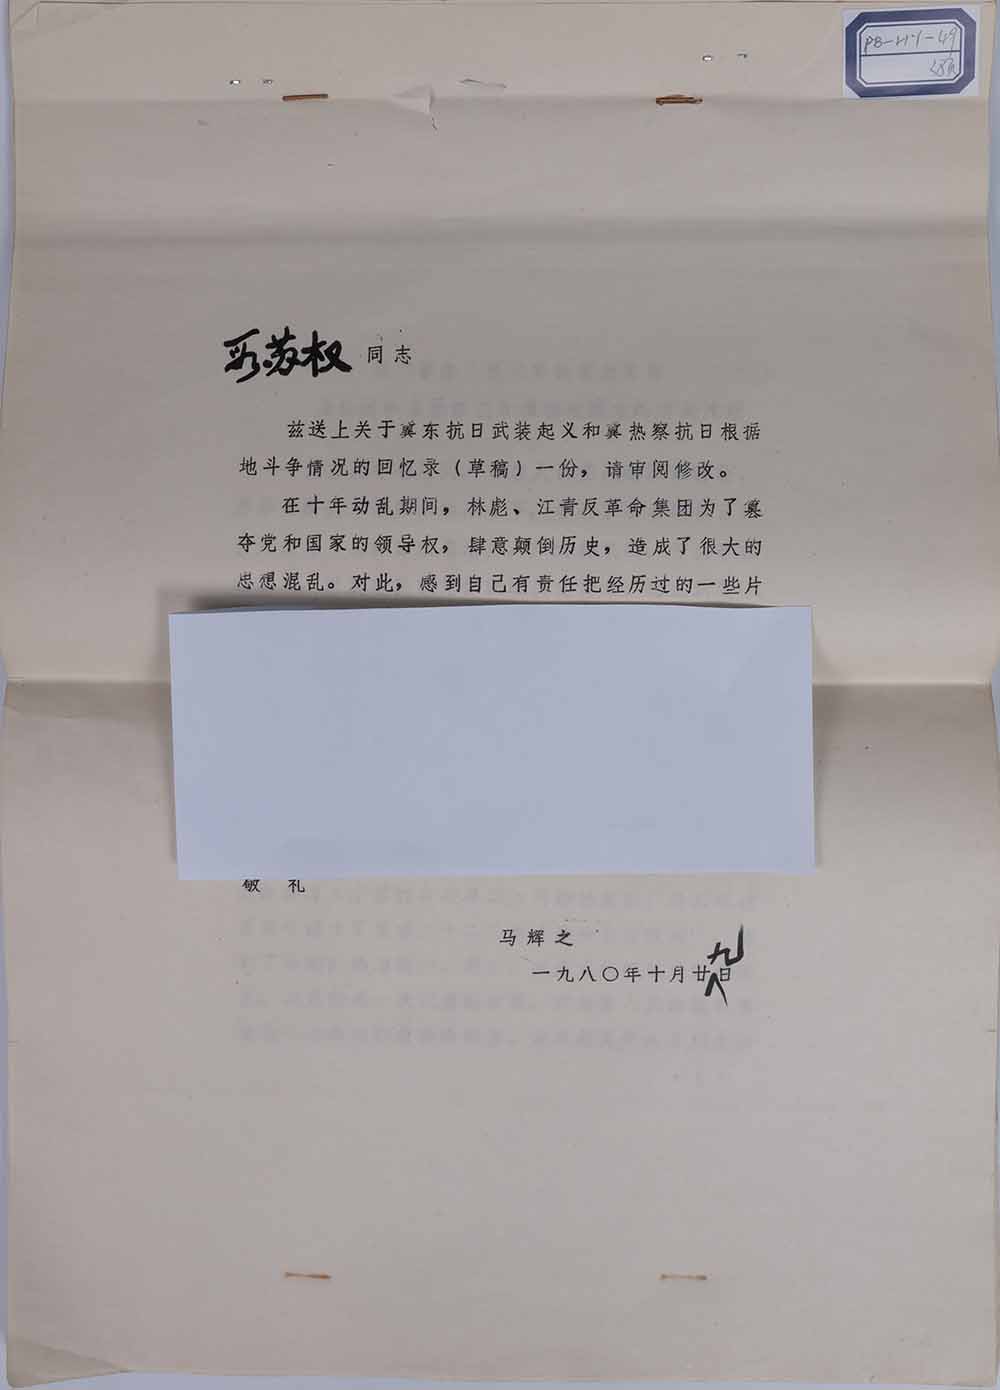 PB-HY-49
段苏权 同志
兹送上关于冀东抗日武装起义和冀热察抗日根据
地斗争情况的回忆录（草稿）一份，请审阅修改。
在十年动乱期间，林彪、江青反革命集团为了篡
夺党和国家的领导权，肆意颠倒历史，造成了很大的
思想混乱。对此，感到自己有责任把经历过的一些片
敬 礼
马辉之
一九八〇年十月廿九日